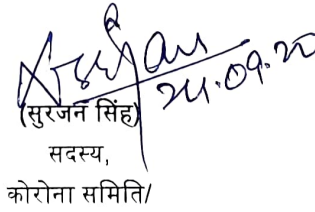 24.09.20
(सुरजन सिंह)
सदस्य,
कोरोना समिति/